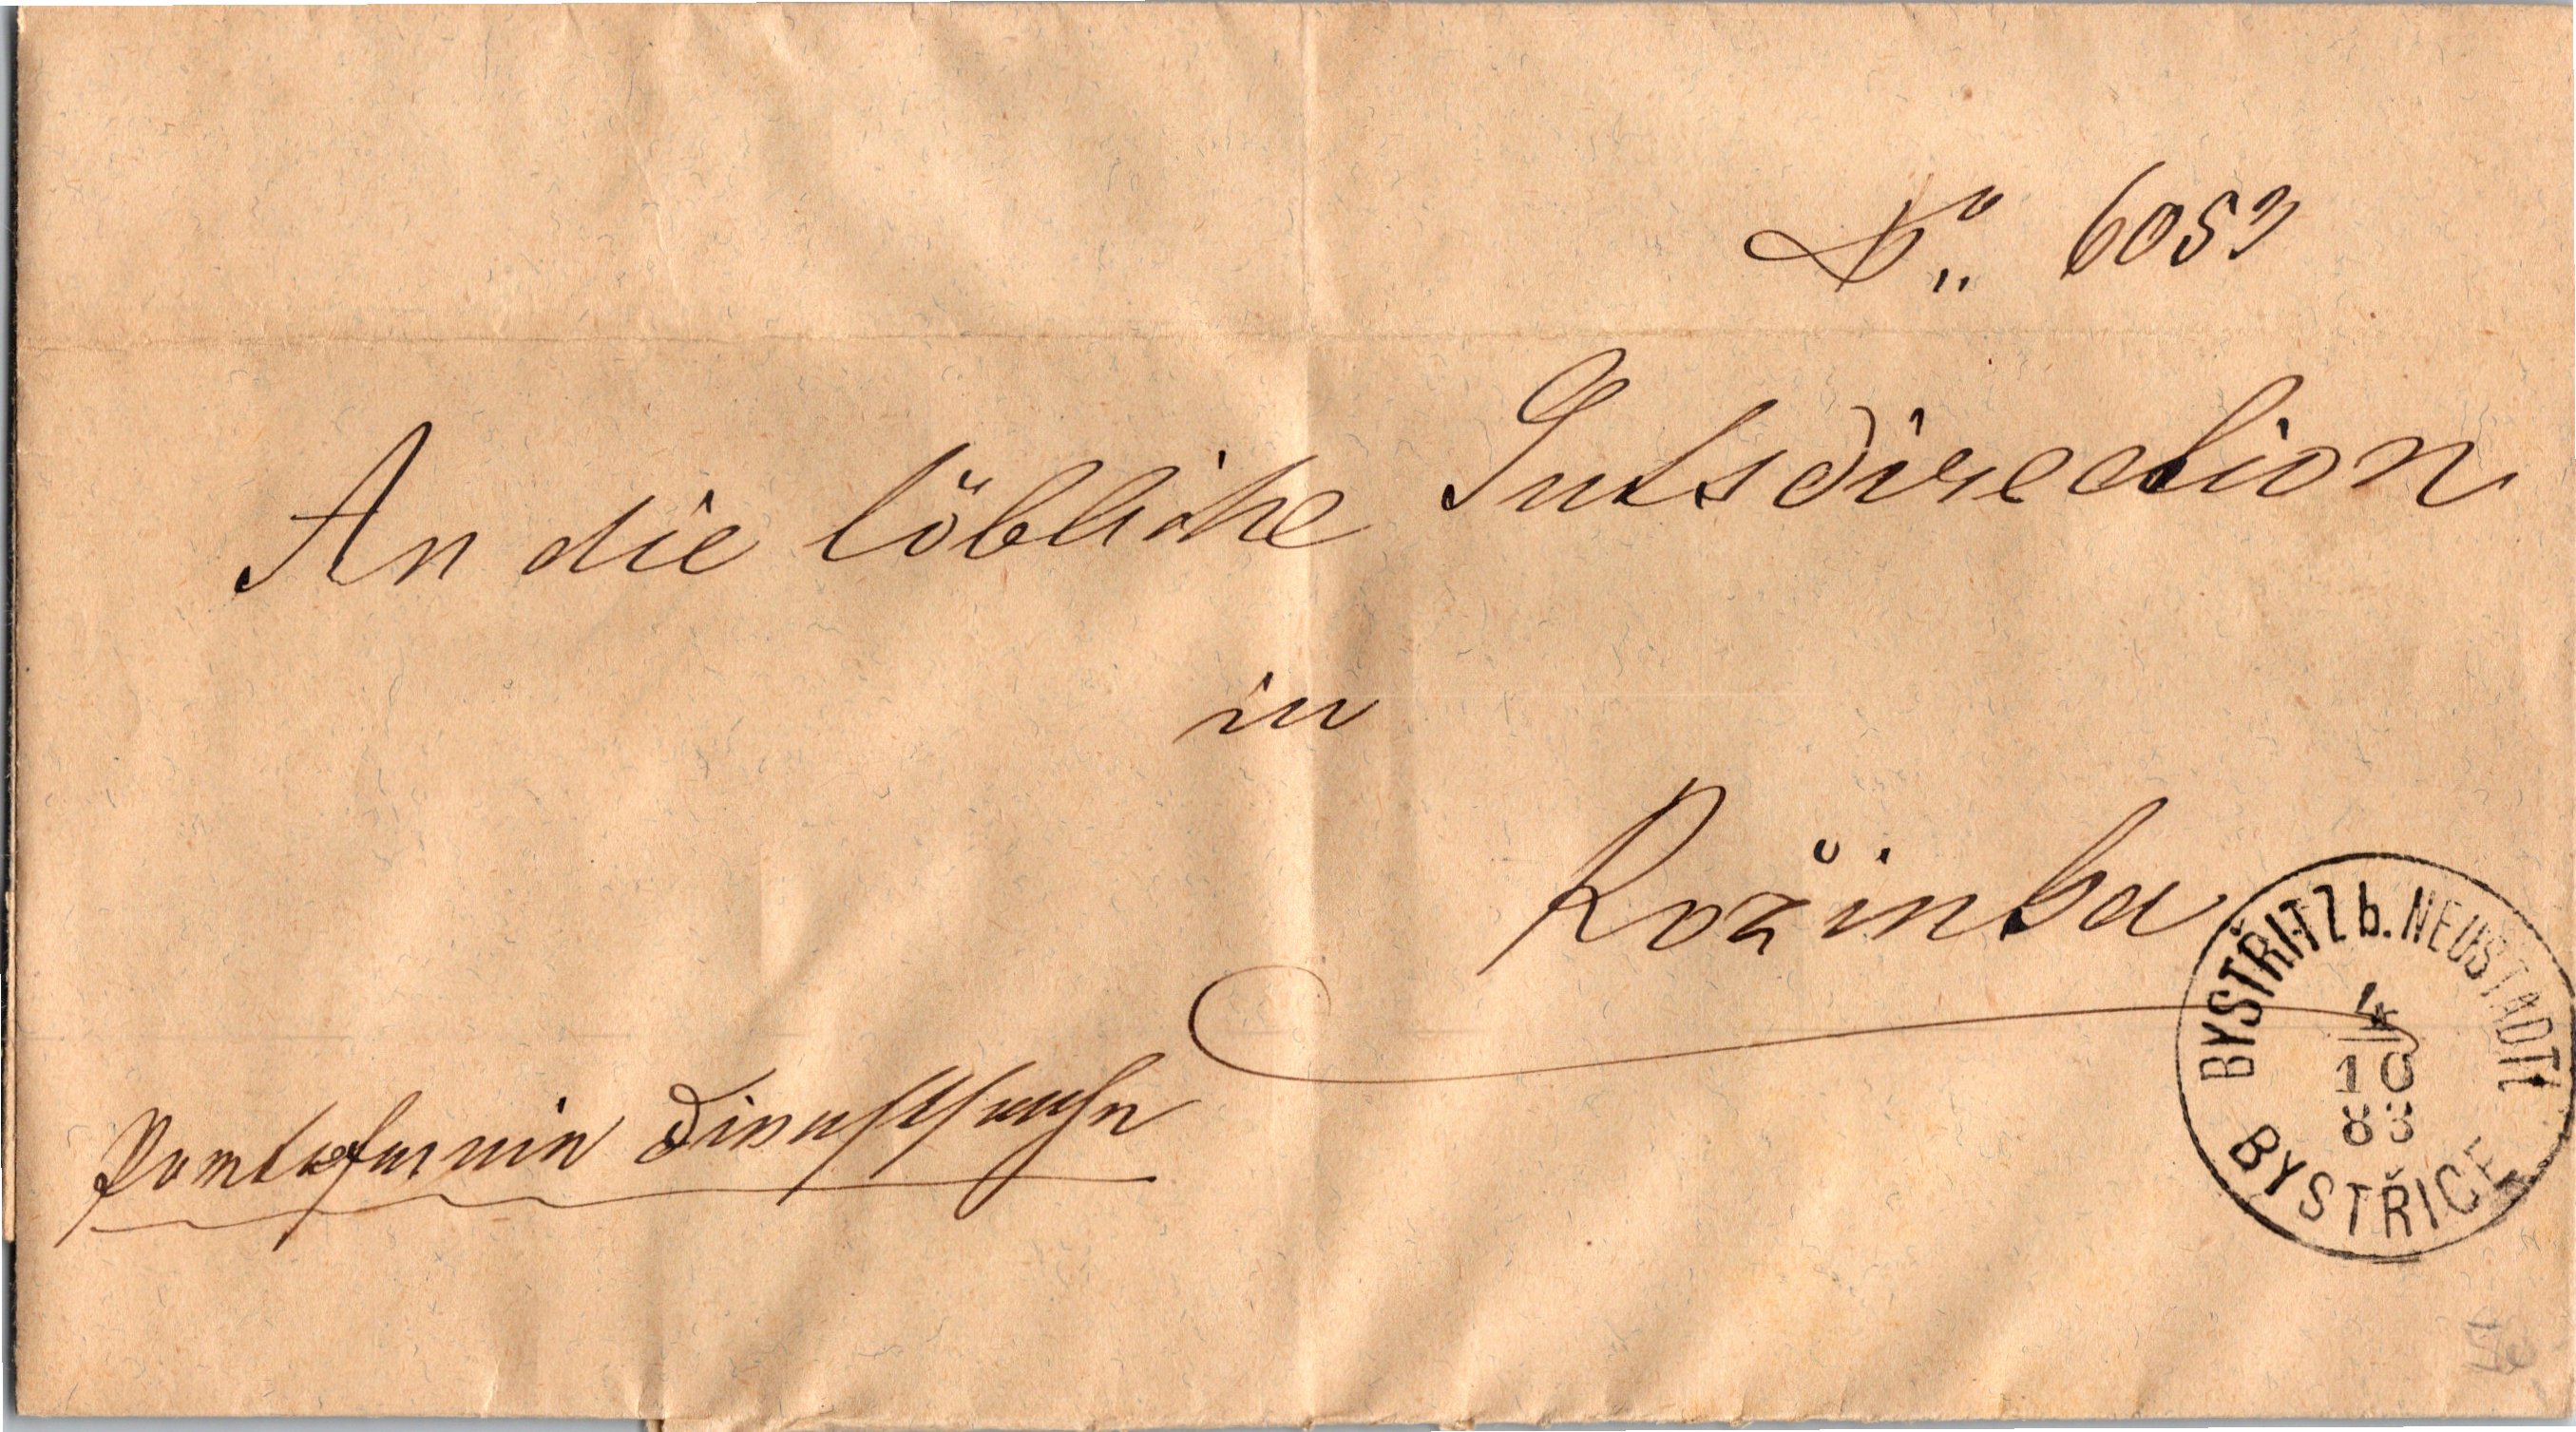 No 6053
An die löbliche Gutsdirection
in
Rožinka
Portofreie Dienstsache
BYSTŘITZ b. NEUSTADTL
4
10
83
BYSTŘICE